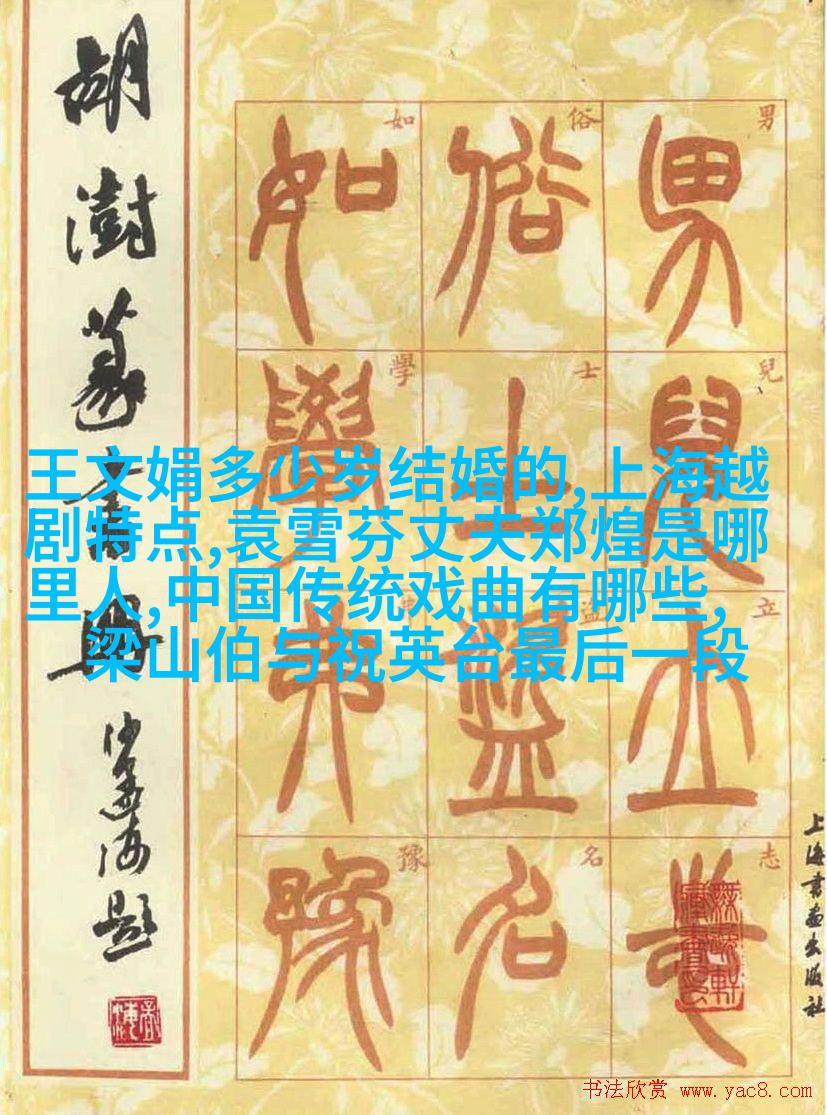 胡澍篆書冊
沙孟海題
男兒立志
俗士名
如學弗豫
男
兒
立
志
俗
士
名
如
學
豫
王文娟多少岁结婚的,上海越
剧特点,袁雪芬丈夫郑煌是哪
里人,中国传统戏曲有哪些,
梁山伯与祝英台最后一段
上海書畫出版社
书法欣赏 www.yac8.com